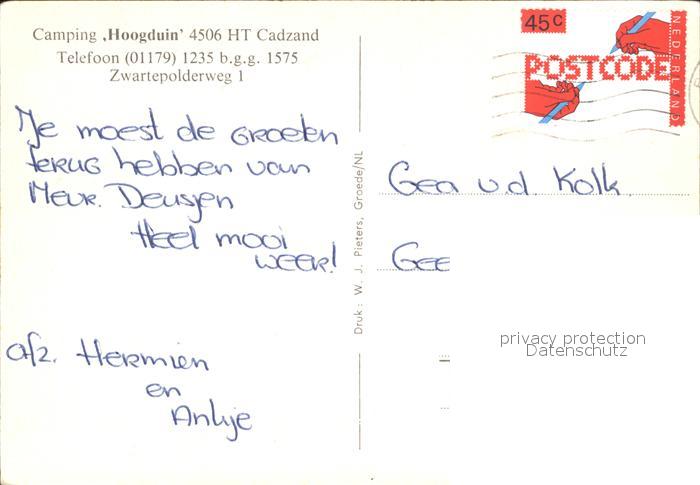 Camping ‚Hoogduin' 4506 HT Cadzand
Telefoon (01179) 1235 b.g.g. 1575
Zwartepolderweg 1
Je moest de groeten
terug hebben van
Mevr. Deusjen
Heel mooi
weer!
afz. Hermien
en
Ankje
Druk: W. J. Pieters, Groede/NL
45c
POSTCODE
NEDERLAND
Gea v.d. Kolk.
Gee
privacy protection
Datenschutz